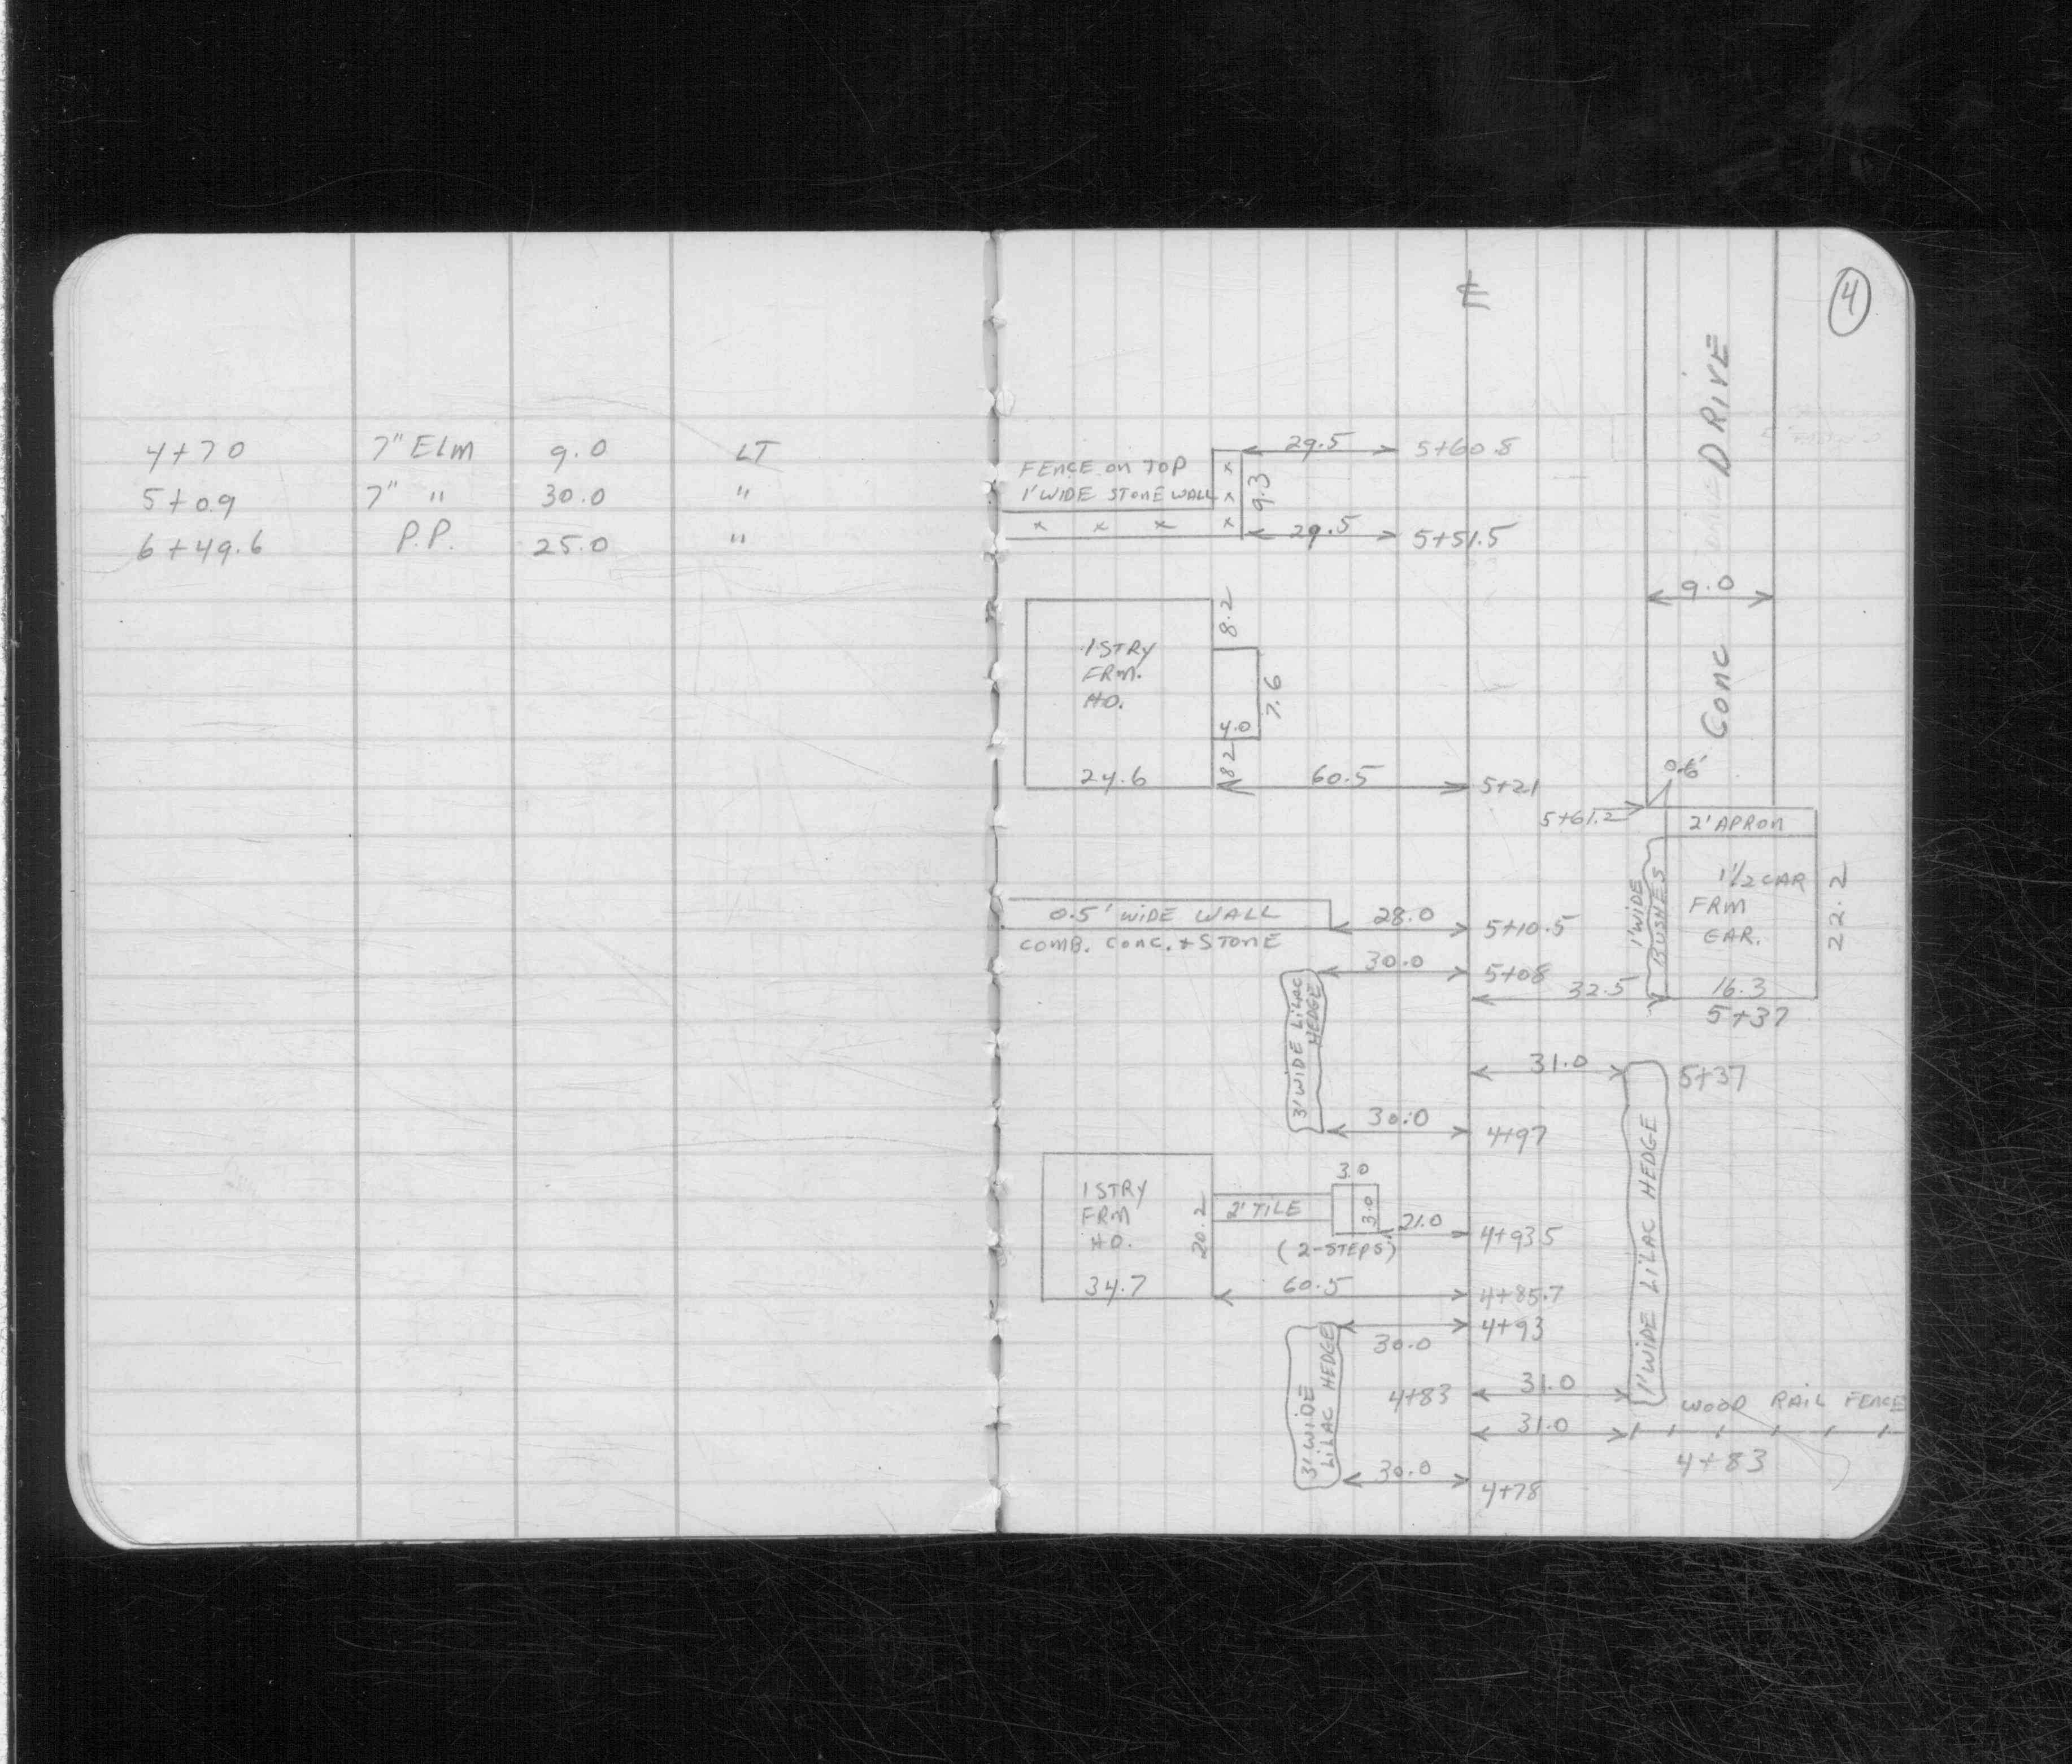 4+70 7" ELM 9.0 LT
5+09 7" " 30.0 "
6+49.6 P.P. 25.0 "
4
℄
CONC DRIVE
29.5 5+60.8
FENCE ON TOP
1' WIDE STONE WALL
9.3
29.5 5+51.5
9.0
8.2
1 STRY
FRM.
HO.
7.6
4.0
8.2
24.6
60.5 5+21
0.6'
5+61.2
2' APRON
1' WIDE
BUSHES
1 1/2 CAR
FRM
GAR.
22.2
0.5' WIDE WALL
28.0 5+10.5
COMB. CONC. + STONE
30.0 5+08
32.5
16.3
5+37
3' WIDE LILAC
HEDGE
31.0 5+37
30.0 4+97
1' WIDE LILAC HEDGE
1 STRY
FRM
HO.
20.2
2' TILE
3.0
3.0
21.0 4+93.5
(2-STEPS)
34.7
60.5 4+85.7
4+93
30.0
3' WIDE
LILAC HEDGE
4+83 31.0
WOOD RAIL FENCE
31.0
4+83
30.0 4+78